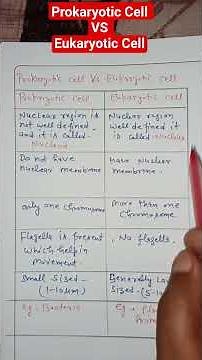 Prokaryotic Cell
VS
Eukaryotic Cell
Prokaryotic cell Vs Eukaryotic cell
Prokaryotic cell
Eukaryotic cell
Nuclear region is
not well defined
and it is called
Nucleoid
Nuclear region
well defined it
is called Nucleus
Do not have
nuclear membrane
Have Nuclear
membrane.
only one Chromosome
More than one
Chromosome
Flagella is present
which help in
movement
No flagella.
Small Sized
(1-10µm)
Generally La
Sized (5-10
Eg: Bacteria
Eg :